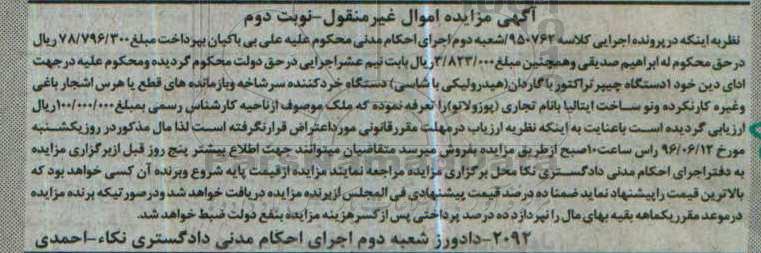 آگهی مزایده اموال غیرمنقول-نوبت دوم
نظربه اینکه درپرونده اجرایی کلاسه ۹۵۰۷۶۲/شعبه دوم اجرای احکام مدنی محکوم علیه علی بی باکیان بپرداخت مبلغ ۷۸/۷۹۶/۳۰۰ ریال
درحق محکوم له ابراهیم صدیقی وهمچنین مبلغ ۳/۸۲۳/۰۰۰ ریال بابت نیم عشراجرایی درحق دولت محکوم گردیده ومحکوم علیه درجهت
ادای دین خود ۱دستگاه چیپر تراکتور با گاردان(هیدرولیکی با شاسی) دستگاه خردکننده سرشاخه وبازمانده های قطع یا هرس اشجار باغی
وغیره کارکرده ونو ساخت ایتالیا بانام تجاری (پوزولاتو)را تعرفه نموده که ملک موصوف ازناحیه کارشناس رسمی بمبلغ ۱۰۰/۰۰۰/۰۰۰ریال
ارزیابی گردیده است باعنایت به اینکه نظریه ارزیاب درمهلت مقررقانونی مورداعتراض قرارنگرفته است لذا مال مذکوردر روزیکشنبه
مورخ ۹۶/۰۶/۱۲ راس ساعت۱۰صبح ازطریق مزایده بفروش میرسد متقاضیان میتوانند جهت اطلاع بیشتر پنج روز قبل ازبرگزاری مزایده
به دفتراجرای احکام مدنی دادگستری نکا محل برگزاری مزایده مراجعه نمایند مزایده ازقیمت پایه شروع وبرنده آن کسی خواهد بود که
بالاترین قیمت راپیشنهاد نماید ضمنا ده درصد قیمت پیشنهادی فی المجلس ازبرنده مزایده دریافت خواهد شد ودرصورتیکه برنده مزایده
درموعد مقرریکماهه بقیه بهای مال را نپردازد ده درصد پرداختی پس ازکسرهزینه مزایده بنفع دولت ضبط خواهد شد.
۲۰۹۲-دادورز شعبه دوم اجرای احکام مدنی دادگستری نکاء-احمدی